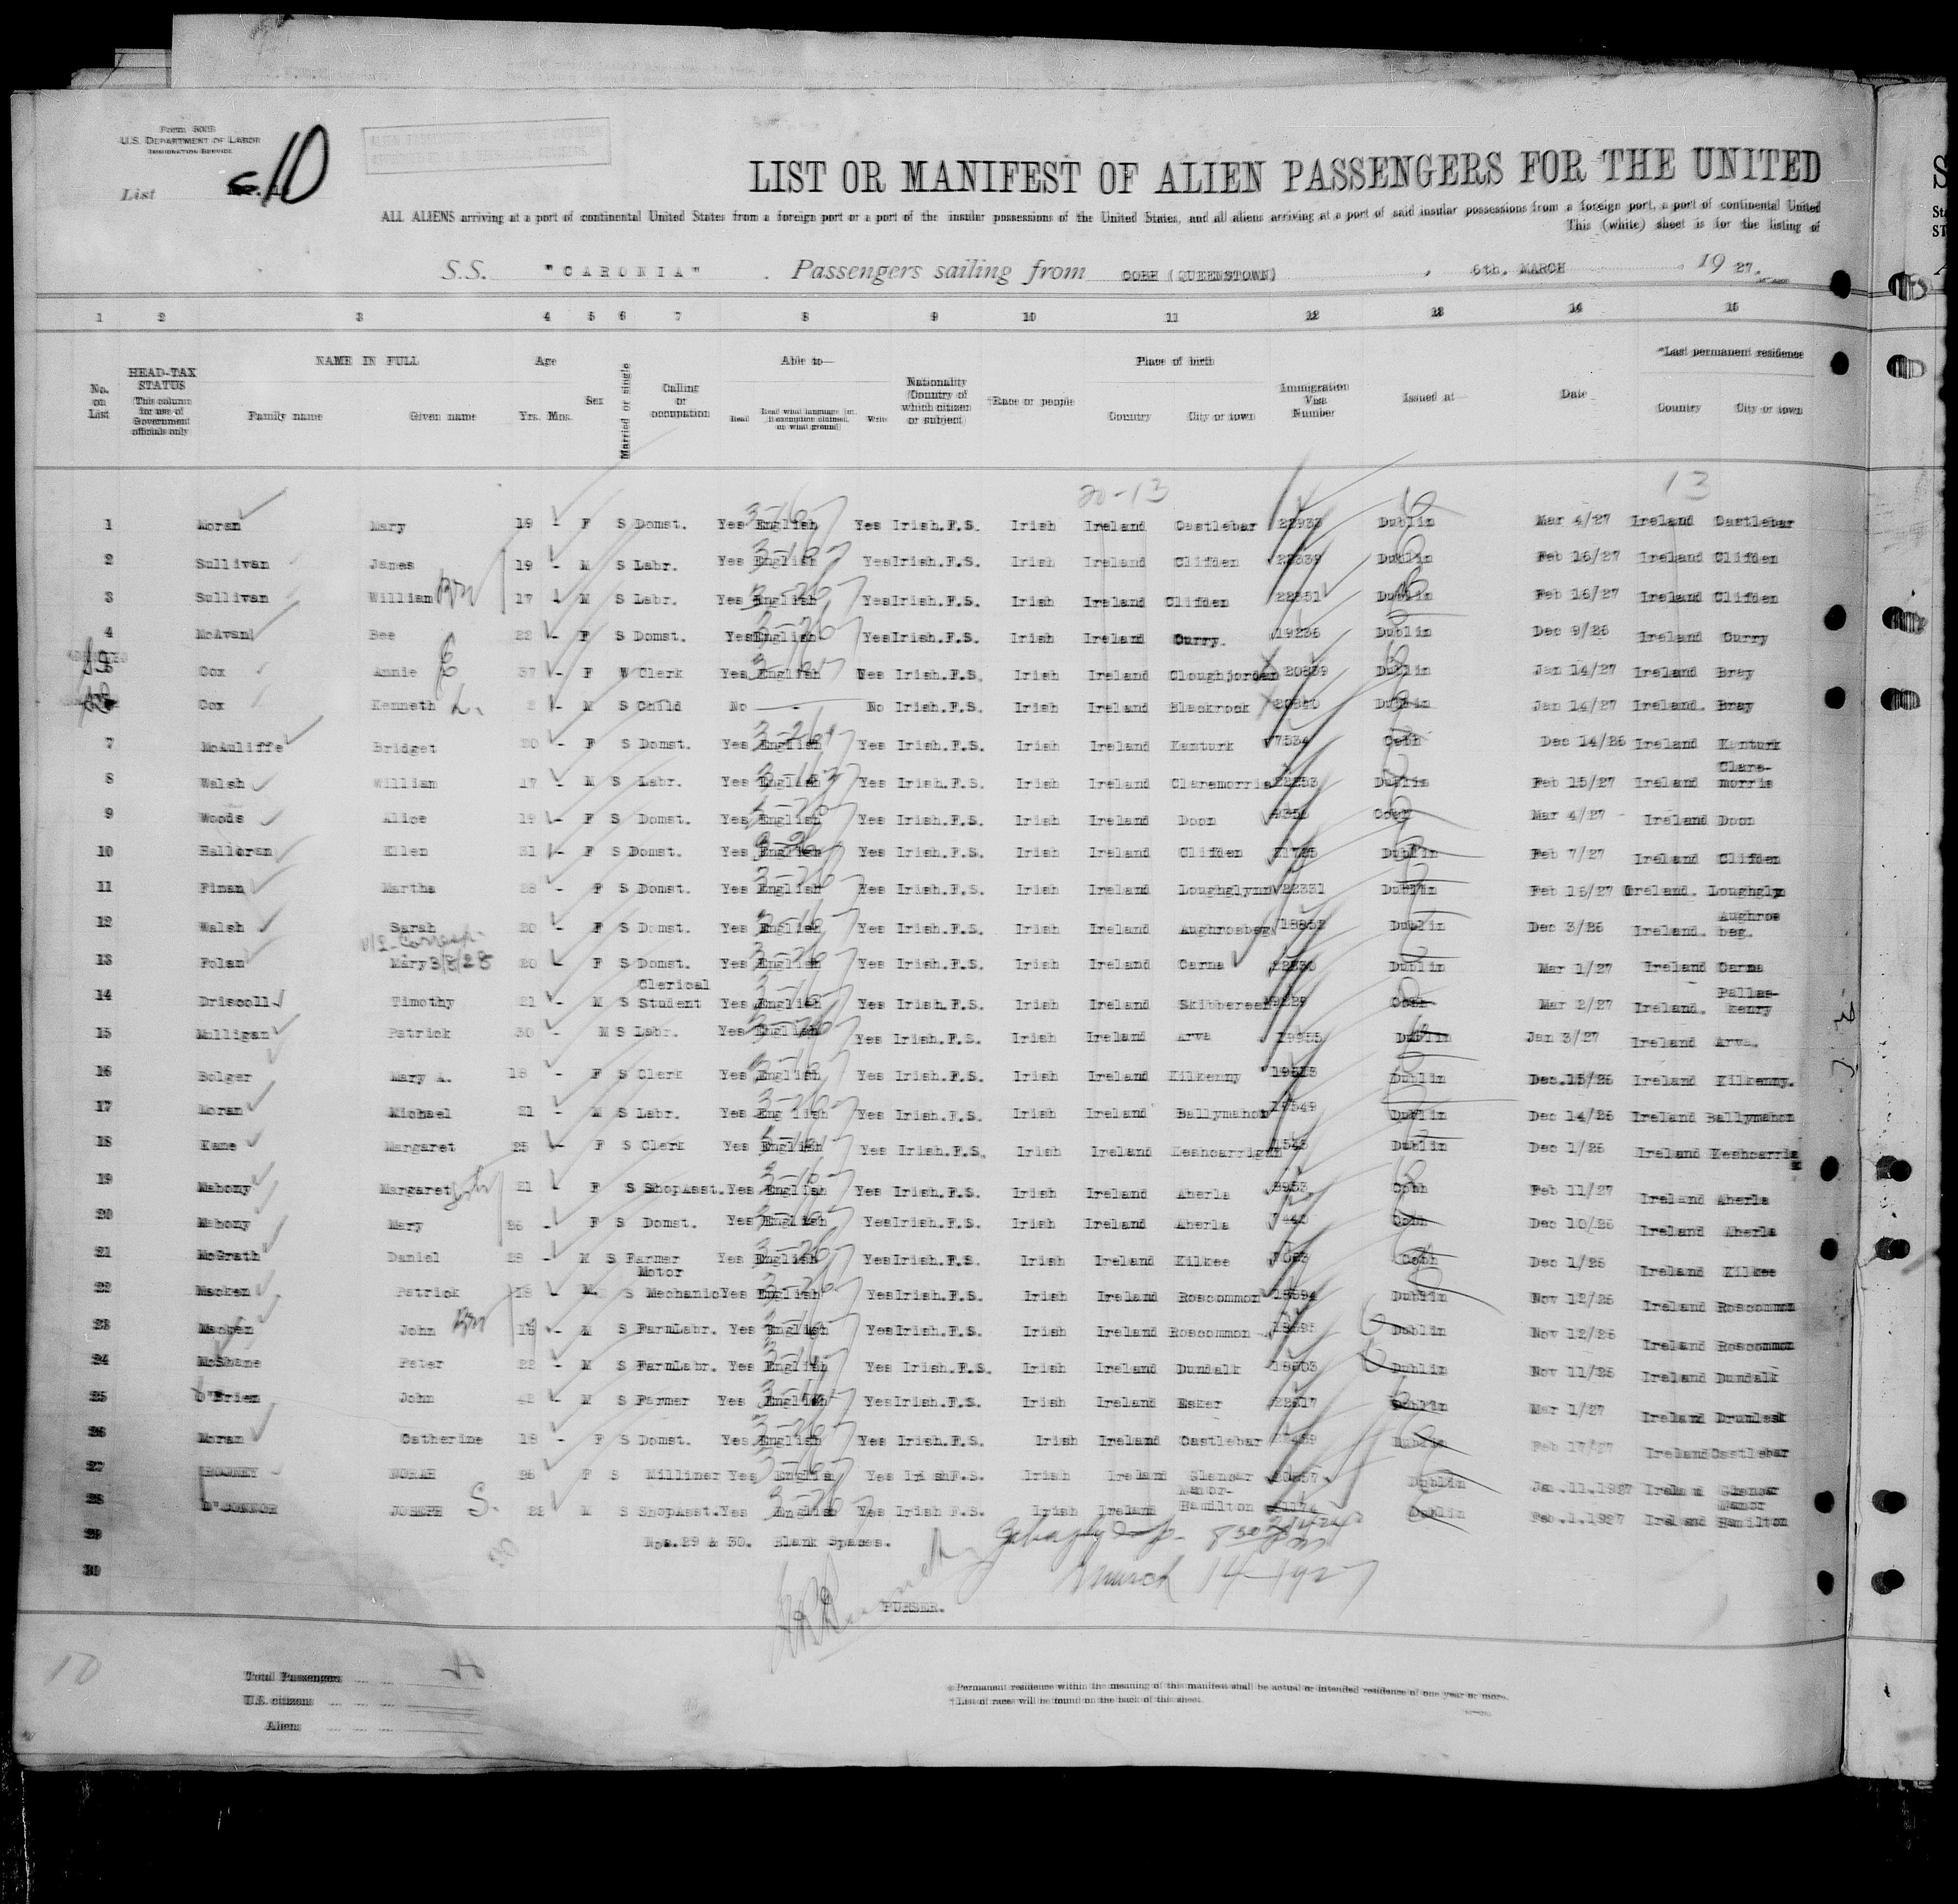 Form 500B
U.S. DEPARTMENT OF LABOR
IMMIGRATION SERVICE
List 10
LIST OR MANIFEST OF ALIEN PASSENGERS FOR THE UNITED
ALL ALIENS arriving at a port of continental United States from a foreign port or a port of the insular possessions of the United States, and all aliens arriving at a port of said insular possessions from a foreign port, a port of continental United
This (white) sheet is for the listing of
S.S. "CARONIA" . Passengers sailing from COBH (QUEENSTOWN) , 6th. MARCH , 19 27.
1 2 3 4 5 6 7 8 9 10 11 12 13 14 15
No. on List
HEAD-TAX STATUS (This column for use of Government officials only)
NAME IN FULL Family name Given name
Age Yrs. Mos.
Sex
Married or single
Calling or occupation
Able to— Read Read what language [or, if exemption claimed, on what ground] Write
Nationality (Country of which citizen or subject)
†Race or people
Place of birth Country City or town
Immigration Visa Number
Issued at—
Date
*Last permanent residence Country City or town
20-13 13
1 Moran Mary 19 - F S Domst. Yes English Yes Irish.F.S. Irish Ireland Castlebar Dublin Mar 4/27 Ireland Castlebar
2 Sullivan James 19 - M S Labr. Yes English Yes Irish.F.S. Irish Ireland Clifden 22339 Dublin Feb 16/27 Ireland Clifden
3 Sullivan William 17 - M S Labr. Yes English Yes Irish.F.S. Irish Ireland Clifden 22351 Dublin Feb 16/27 Ireland Clifden
4 McAvan Bee 22 - F S Domst. Yes English Yes Irish.F.S. Irish Ireland Curry. 19236 Dublin Dec 9/26 Ireland Curry
Cox Annie E 37 - F W Clerk Yes English Yes Irish.F.S. Irish Ireland Cloughjordan 20839 Dublin Jan 14/27 Ireland Bray
Cox Kenneth L. - M S Child No - No Irish.F.S. Irish Ireland Blackrock 20840 Dublin Jan 14/27 Ireland. Bray
7 McAuliffe Bridget 20 - F S Domst. Yes English Yes Irish.F.S. Irish Ireland Kanturk 7534 Cobh Dec 14/26 Ireland Kanturk
8 Walsh William 17 - M S Labr. Yes English Yes Irish.F.S. Irish Ireland Claremorris 22253 Dublin Feb 15/27 Ireland Clare-morris
9 Woods Alice 19 - F S Domst. Yes English Yes Irish.F.S. Irish Ireland Doon Cobh Mar 4/27 Ireland Doon
10 Halloran Ellen 31 - F S Domst. Yes English Yes Irish.F.S. Irish Ireland Clifden Dublin Feb 7/27 Ireland Clifden
11 Finan Martha 28 - F S Domst. Yes English Yes Irish.F.S. Irish Ireland Loughglynn 22331 Dublin Feb 16/27 Ireland. Loughglyn
12 Walsh Sarah 20 - F S Domst. Yes English Yes Irish.F.S. Irish Ireland Aughrosbeg Dublin Dec 3/26 Ireland. Aughros beg.
13 Folan Mary 3/8/28 20 - F S Domst. Yes English Yes Irish.F.S. Irish Ireland Carna Dublin Mar 1/27 Ireland Carna
14 Driscoll Timothy 21 - M S Clerical Student Yes English Yes Irish.F.S. Irish Ireland Skibbereen 9229 Cobh Mar 2/27 Ireland. Pallas-kenry
15 Mulligan Patrick 30 - M S Labr. Yes English Yes Irish.F.S. Irish Ireland Arva 19955 Dublin Jan 3/27 Ireland Arva.
16 Bolger Mary A. 18 - F S Clerk Yes English Yes Irish.F.S. Irish Ireland Kilkenny Dublin Dec.15/26 Ireland Kilkenny.
17 Moran Michael 21 - M S Labr. Yes English Yes Irish.F.S. Irish Ireland Ballymahon 19549 Dublin Dec 14/26 Ireland Ballymahon
18 Kane Margaret 25 - F S Clerk Yes English Yes Irish.F.S. Irish Ireland Keshcarrigan Dublin Dec 1/26 Ireland Keshcarrig
19 Mahony Margaret 21 - F S ShopAsst. Yes English Yes Irish.F.S. Irish Ireland Aherla 8953 Cobh Feb 11/27 Ireland Aherla
20 Mahony Mary 26 - F S Domst. Yes English Yes Irish.F.S. Irish Ireland Aherla Cobh Dec 10/26 Ireland Aherla
21 McGrath Daniel 28 - M S Farmer Yes English Yes Irish.F.S. Irish Ireland Kilkee Cobh Dec 1/26 Ireland Kilkee
22 Macken Patrick 18 M. S Motor Mechanic Yes English Yes Irish.F.S. Irish Ireland Roscommon 18594 Dublin Nov 12/26 Ireland Roscommon
23 Macken John 19 - M S FarmLabr. Yes English Yes Irish.F.S. Irish Ireland Roscommon 18595 Dublin Nov 12/26 Ireland Roscommon
24 McShane Peter 22 - M S FarmLabr. Yes English Yes Irish.F.S. Irish Ireland Dundalk 18503 Dublin Nov 11/26 Ireland Dundalk
25 O'Brien John 42 - M S Farmer Yes English Yes Irish.F.S. Irish Ireland Esker Dublin Mar 1/27 Ireland Drumlesk
26 Moran Catherine 18 - F S Domst. Yes English Yes Irish.F.S. Irish Ireland Castlebar Dublin Feb 17/27 Ireland Castlebar
27 ROONEY NORAH 26 F S Milliner Yes English Yes Irish F.S. Irish Ireland Glencar Dublin Jan.11.1927 Ireland Glencar
28 O'CONNOR JOSEPH S. 22 M S ShopAsst. Yes English Yes Irish F.S. Irish Ireland Manor-Hamilton Dublin Feb.1.1927 Ireland Manor Hamilton
29 Nos.29 & 30. Blank Spaces.
30 March 14-1927
PURSER.
10
Total Passengers
U.S. citizens
Aliens
*Permanent residence within the meaning of this manifest shall be actual or intended residence of one year or more.
†List of races will be found on the back of this sheet.